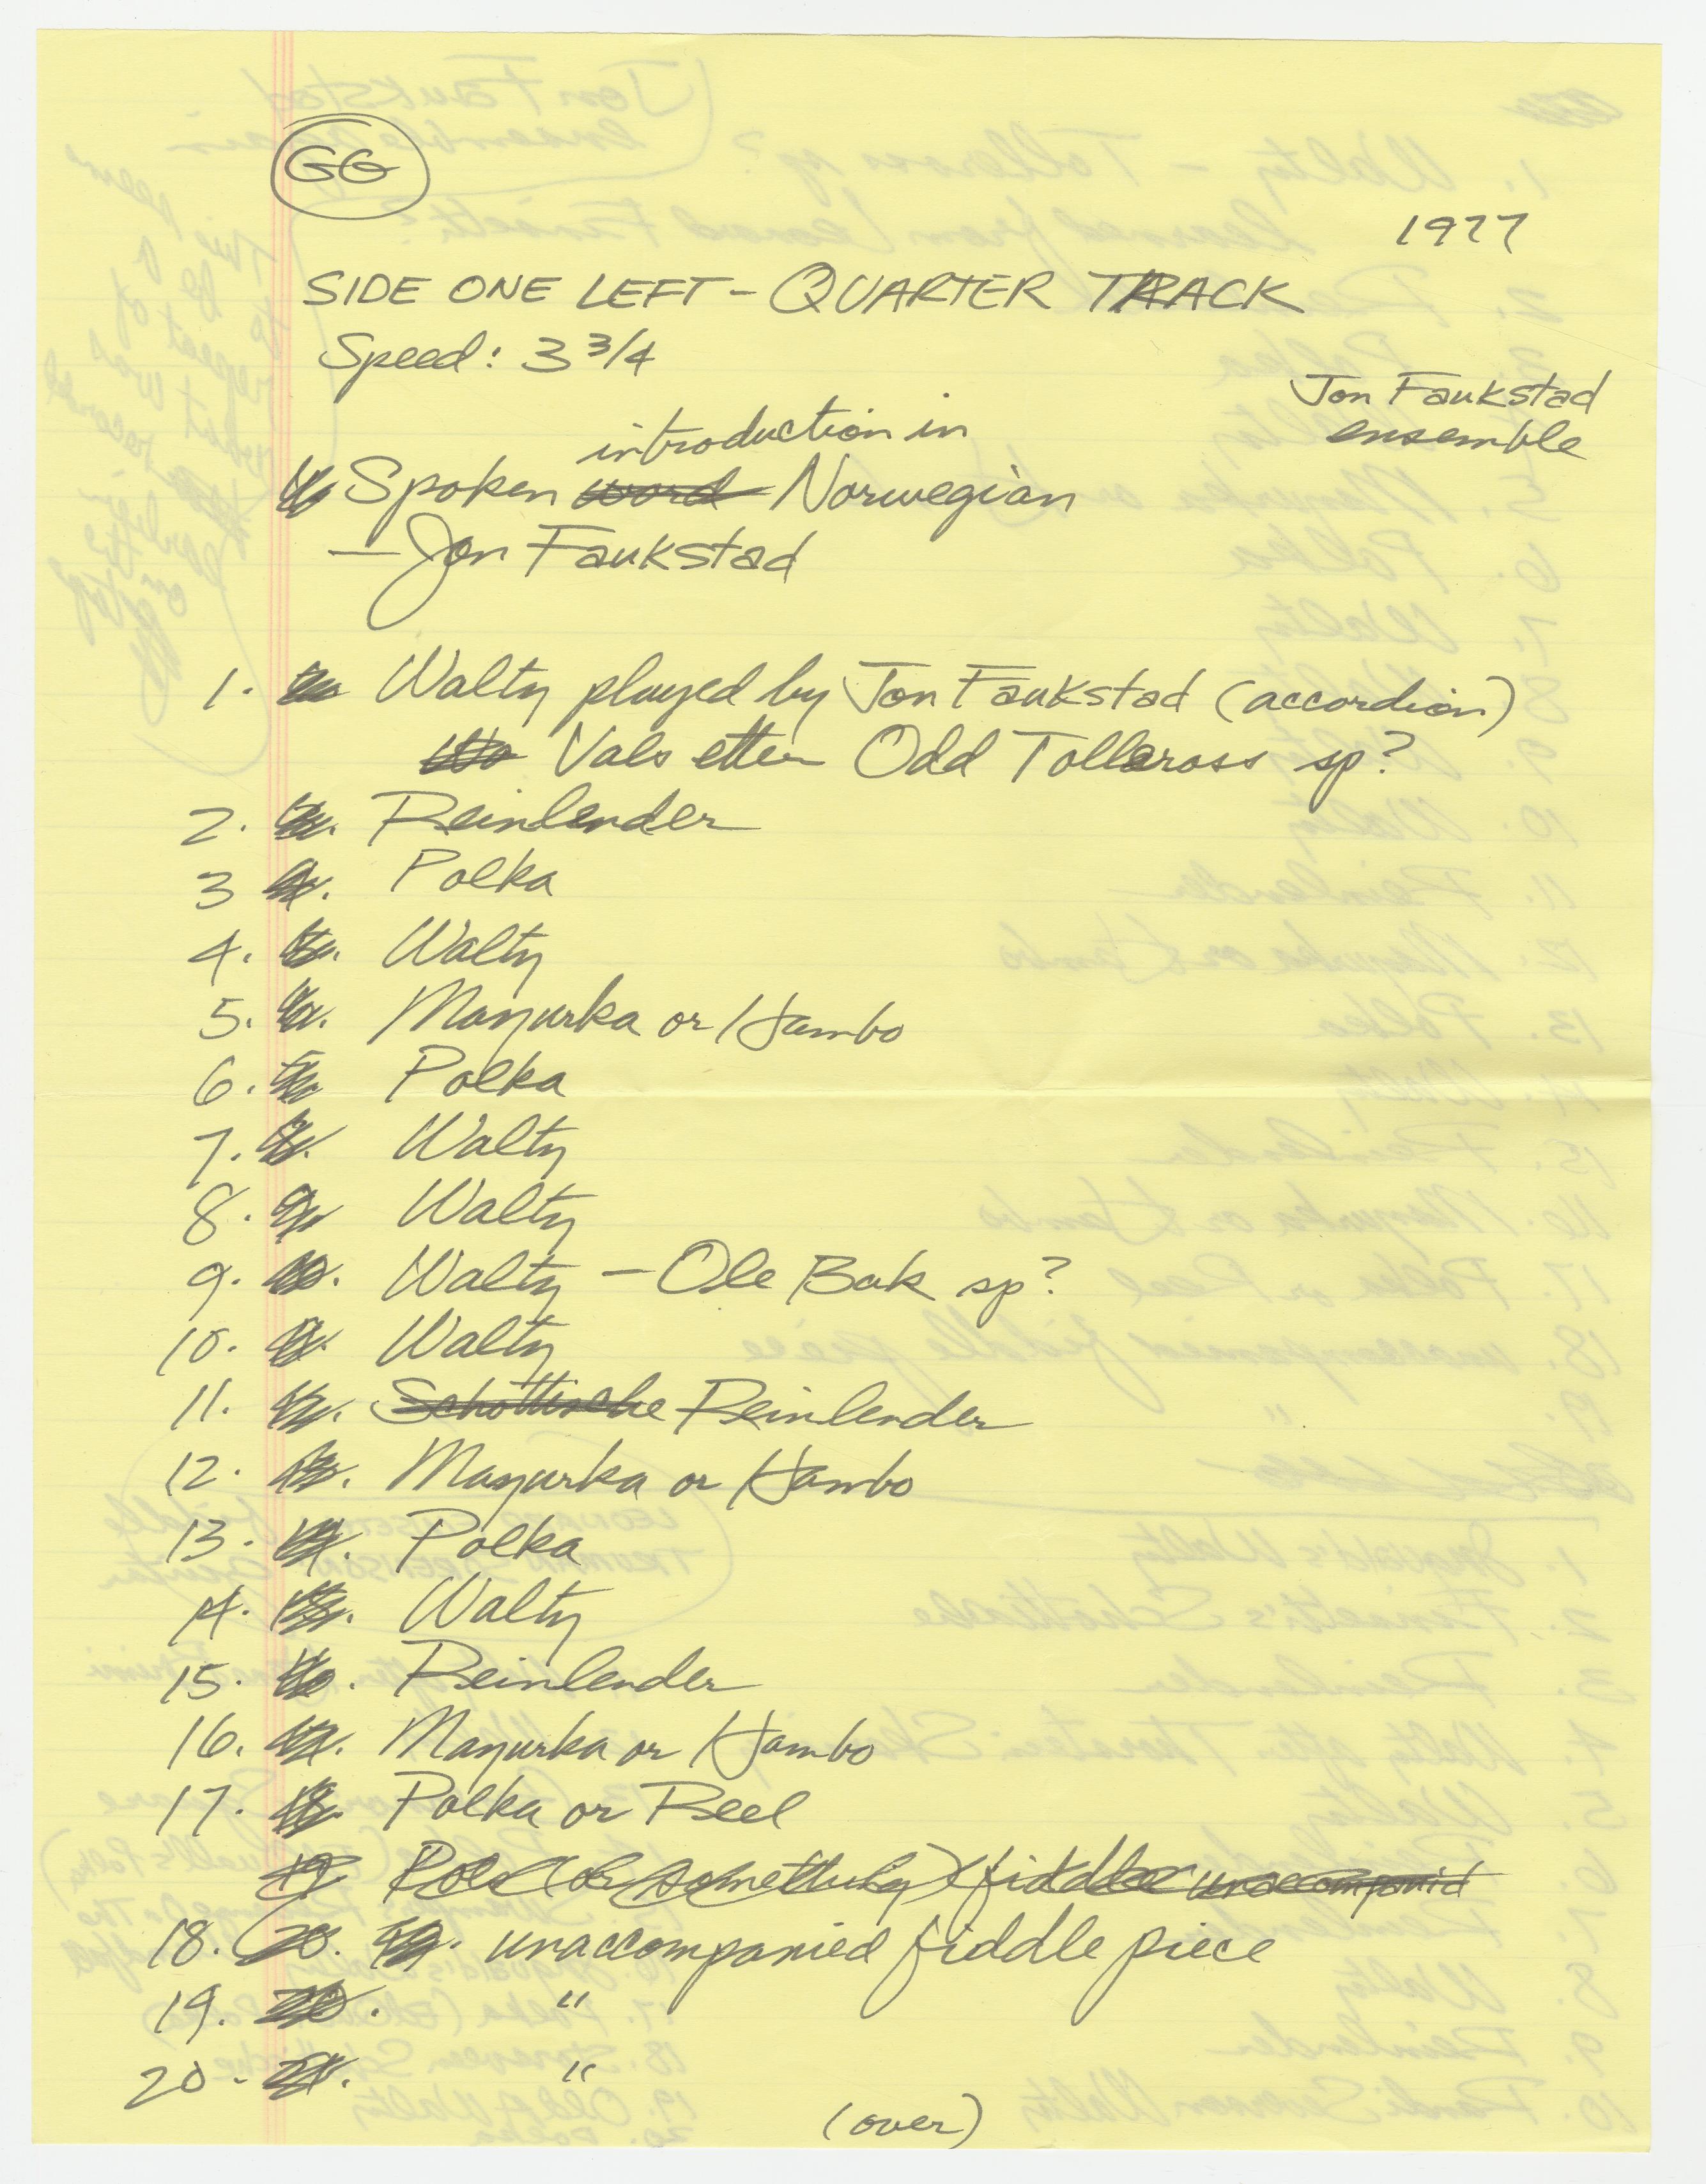 GG
1977
SIDE ONE LEFT - QUARTER TRACK
Speed: 3 3/4
Jon Faukstad
ensemble
introduction in
Spoken word Norwegian
— Jon Faukstad
1. Waltz played by Jon Faukstad (accordion)
Vals etter Odd Tolleross sp?
2. Reinlender
3 Polka
4. Waltz
5. Mazurka or Hambo
6. Polka
7. Waltz
8. Waltz
9. Waltz — Ole Bak sp?
10. Waltz
11. Schottische Reinlender
12. Mazurka or Hambo
13. Polka
14. Waltz
15. Reinlender
16. Mazurka or Hambo
17. Polka or Reel
19 Polk (or something) (fiddle unaccompanid
18. 20. unaccompanied fiddle piece
19. "
20. "
(over)